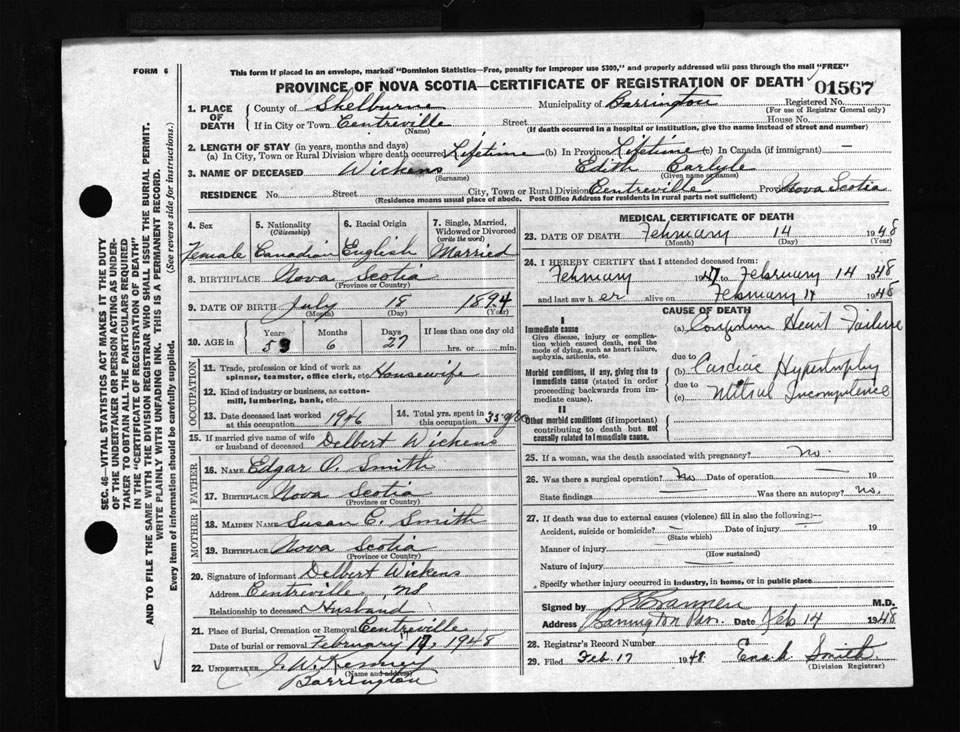 FORM 6
This form if placed in an envelope, marked "Dominion Statistics—Free, penalty for improper use $300," and properly addressed will pass through the mail "FREE"
PROVINCE OF NOVA SCOTIA—CERTIFICATE OF REGISTRATION OF DEATH
01567
SEC. 46—VITAL STATISTICS ACT MAKES IT THE DUTY
OF THE UNDERTAKER OR PERSON ACTING AS UNDER-
TAKER TO OBTAIN ALL THE PARTICULARS REQUIRED
IN THE "CERTIFICATE OF REGISTRATION OF DEATH"
AND TO FILE THE SAME WITH THE DIVISION REGISTRAR WHO SHALL ISSUE THE BURIAL PERMIT.
WRITE PLAINLY WITH UNFADING INK. THIS IS A PERMANENT RECORD.
Every item of information should be carefully supplied. (See reverse side for instructions.)
1. PLACE OF DEATH
County of Shelburne Municipality of Barrington Registered No.
(For use of Registrar General only)
If in City or Town Centreville Street House No.
(Name) (If death occurred in a hospital or institution, give the name instead of street and number)
2. LENGTH OF STAY (in years, months and days)
(a) In City, Town or Rural Division where death occurred Lifetime (b) In Province Lifetime (c) In Canada (if immigrant) —
3. NAME OF DECEASED Wickens Edith Carlyle
(Surname) (Given name or names)
RESIDENCE No. Street City, Town or Rural Division Centreville Province Nova Scotia
(Residence means usual place of abode. Post Office Address for residents in rural parts not sufficient)
4. Sex
Female
5. Nationality
(Citizenship)
Canadian
6. Racial Origin
English
7. Single, Married, Widowed or Divorced
(write the word)
Married
8. BIRTHPLACE Nova Scotia
(Province or Country)
9. DATE OF BIRTH July 18 1894
(Month) (Day)
10. AGE in
Years Months Days If less than one day old
53 6 27 hrs. or min.
OCCUPATION
11. Trade, profession or kind of work as spinner, teamster, office clerk, etc. Housewife
12. Kind of industry or business, as cotton-mill, lumbering, bank, etc.
13. Date deceased last worked at this occupation 1946
14. Total yrs. spent in this occupation 35 yrs
15. If married give name of wife or husband of deceased Delbert Wickens
FATHER
16. NAME Edgar O. Smith
17. BIRTHPLACE Nova Scotia
(Province or Country)
MOTHER
18. MAIDEN NAME Susan C. Smith
19. BIRTHPLACE Nova Scotia
(Province or Country)
20. Signature of informant Delbert Wickens
Address Centreville NS
Relationship to deceased Husband
21. Place of Burial, Cremation or Removal Centreville
Date of burial or removal February 17, 1948
22. UNDERTAKER J. W. Kenney
(Name and address)
Barrington
MEDICAL CERTIFICATE OF DEATH
23. DATE OF DEATH February 14 1948
(Month) (Day) (Year)
24. I HEREBY CERTIFY that I attended deceased from:
February 1947 to February 14 1948
and last saw her alive on February 14 1948
CAUSE OF DEATH
I
Immediate cause
Give disease, injury or complication which caused death, not the mode of dying, such as heart failure, asphyxia, asthenia, etc.
(a) Heart Failure
due to
Morbid conditions, if any, giving rise to immediate cause (stated in order proceeding backwards from immediate cause).
(b) Cardiac Hypertrophy
due to
(c) Mitral Incompetence
II
Other morbid conditions (if important) contributing to death but not causally related to immediate cause.
25. If a woman, was the death associated with pregnancy? no.
26. Was there a surgical operation? no Date of operation 19
State findings Was there an autopsy? no.
27. If death was due to external causes (violence) fill in also the following:—
Accident, suicide or homicide? — Date of injury 19
(State which)
Manner of injury
(How sustained)
Nature of injury
Specify whether injury occurred in industry, in home, or in public place
Signed by M.D.
Address Barrington Pas. Date Feb 14 1948
28. Registrar's Record Number
29. Filed Feb. 17 1948 Smith
(Division Registrar)